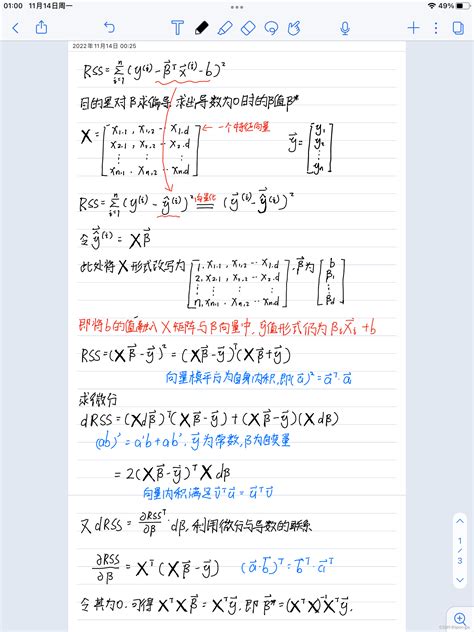 01:00 11月14日周一
49%
T
2022年11月14日 00:25
RSS = Σ_{i=1}^{n} (y^{(i)} - β⃗^T x⃗^{(i)} - b)²
目的是对β求偏导,求出导数为0时的β值β*
X = [x_{1.1}, x_{1.2} ... x_{1.d}; x_{2.1}, x_{2.2} ... x_{2.d}; ⋮ ⋮ ⋮; x_{n.1}, x_{n.2} ... x_{n.d}] ← 一个特征向量 y⃗ = [y₁; y₂; ⋮; yₙ]
RSS = Σ_{i=1}^{n} (y^{(i)} - ŷ^{(i)})² 向量化 = (y⃗^{(i)} - ŷ⃗^{(i)})²
令ŷ⃗^{(i)} = Xβ⃗
此处将X形式改写为 [1, x_{1.1}, x_{1.2} ... x_{1.d}; 2, x_{2.1}, x_{2.2} ... x_{2.d}; ⋮ ⋮ ⋮; n, x_{n.1}, x_{n.2} ... x_{n.d}], β⃗为 [b; β₁; ⋮; β_d]
即将b的值融入X矩阵与β向量中, ŷ值形式仍为
RSS = (Xβ⃗ - y⃗)² = (Xβ⃗ - y⃗)^T (Xβ⃗ + y⃗)
向量模平方为自身内积,即(a⃗)² = a⃗^T · a⃗
求微分
dRSS = (Xdβ⃗)^T (Xβ⃗ - y⃗) + (Xβ⃗ - y⃗)(Xdβ)
(ab)' = a'b + ab', y⃗为常数, β为自变量
= 2(Xβ⃗ - y⃗)^T X dβ
向量内积满足 v⃗^T u⃗ = u⃗^T v⃗
又 dRSS = ∂RSS^T/∂β · dβ, 利用微分与导数的联系
∂RSS/∂β = X^T (Xβ⃗ - y⃗) (a⃗·b⃗)^T = b⃗^T · a⃗^T
令其为0, 可得 X^T Xβ⃗ = X^T y⃗, 即 β⃗* = (X^T X)^{-1} X^T y⃗.
1
/
3